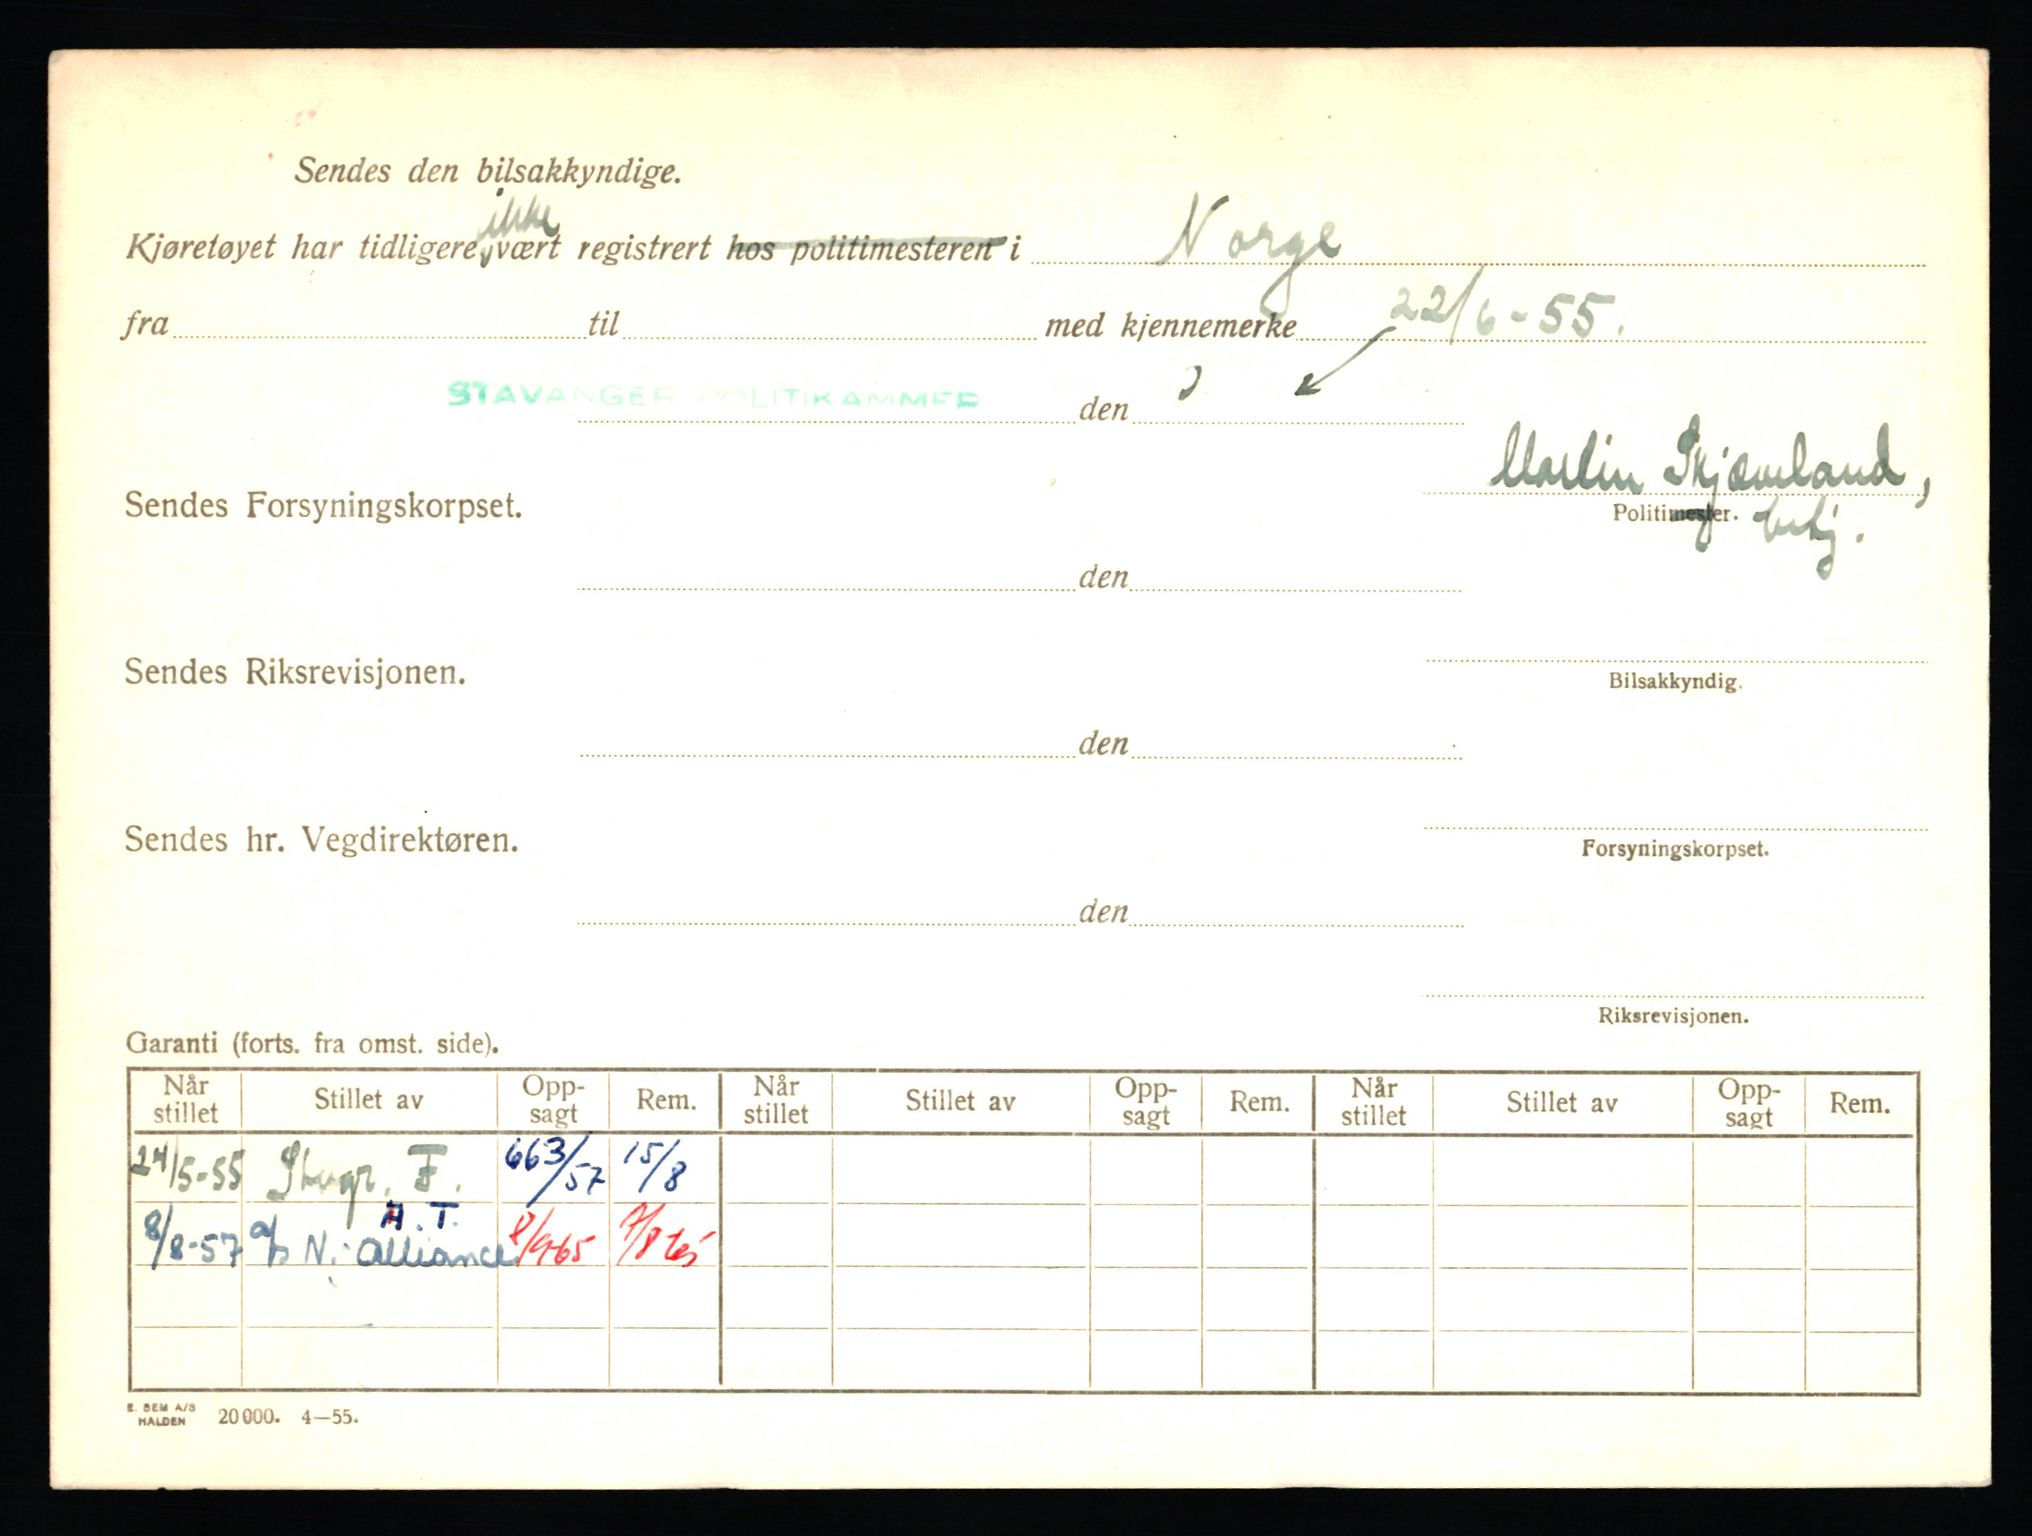 Sendes den bilsakkyndige.
ikke
Kjøretøyet har tidligere vært registrert hos politimesteren i Norge
fra til med kjennemerke 22/6-55.
STAVANGER POLITIKAMMER den
Martin Skjæveland,
Sendes Forsyningskorpset.
Politimester.
den
Sendes Riksrevisjonen.
Bilsakkyndig.
den
Sendes hr. Vegdirektøren.
Forsyningskorpset.
den
Riksrevisjonen.
Garanti (forts. fra omst. side).
Når stillet Stillet av Opp-sagt Rem. Når stillet Stillet av Opp-sagt Rem. Når stillet Stillet av Opp-sagt Rem.
24/5-55 F. 663/57 15/8
A.T.
8/8-57 a/s N. Alliance 65
E. SEM A/S
HALDEN 20000. 4—55.